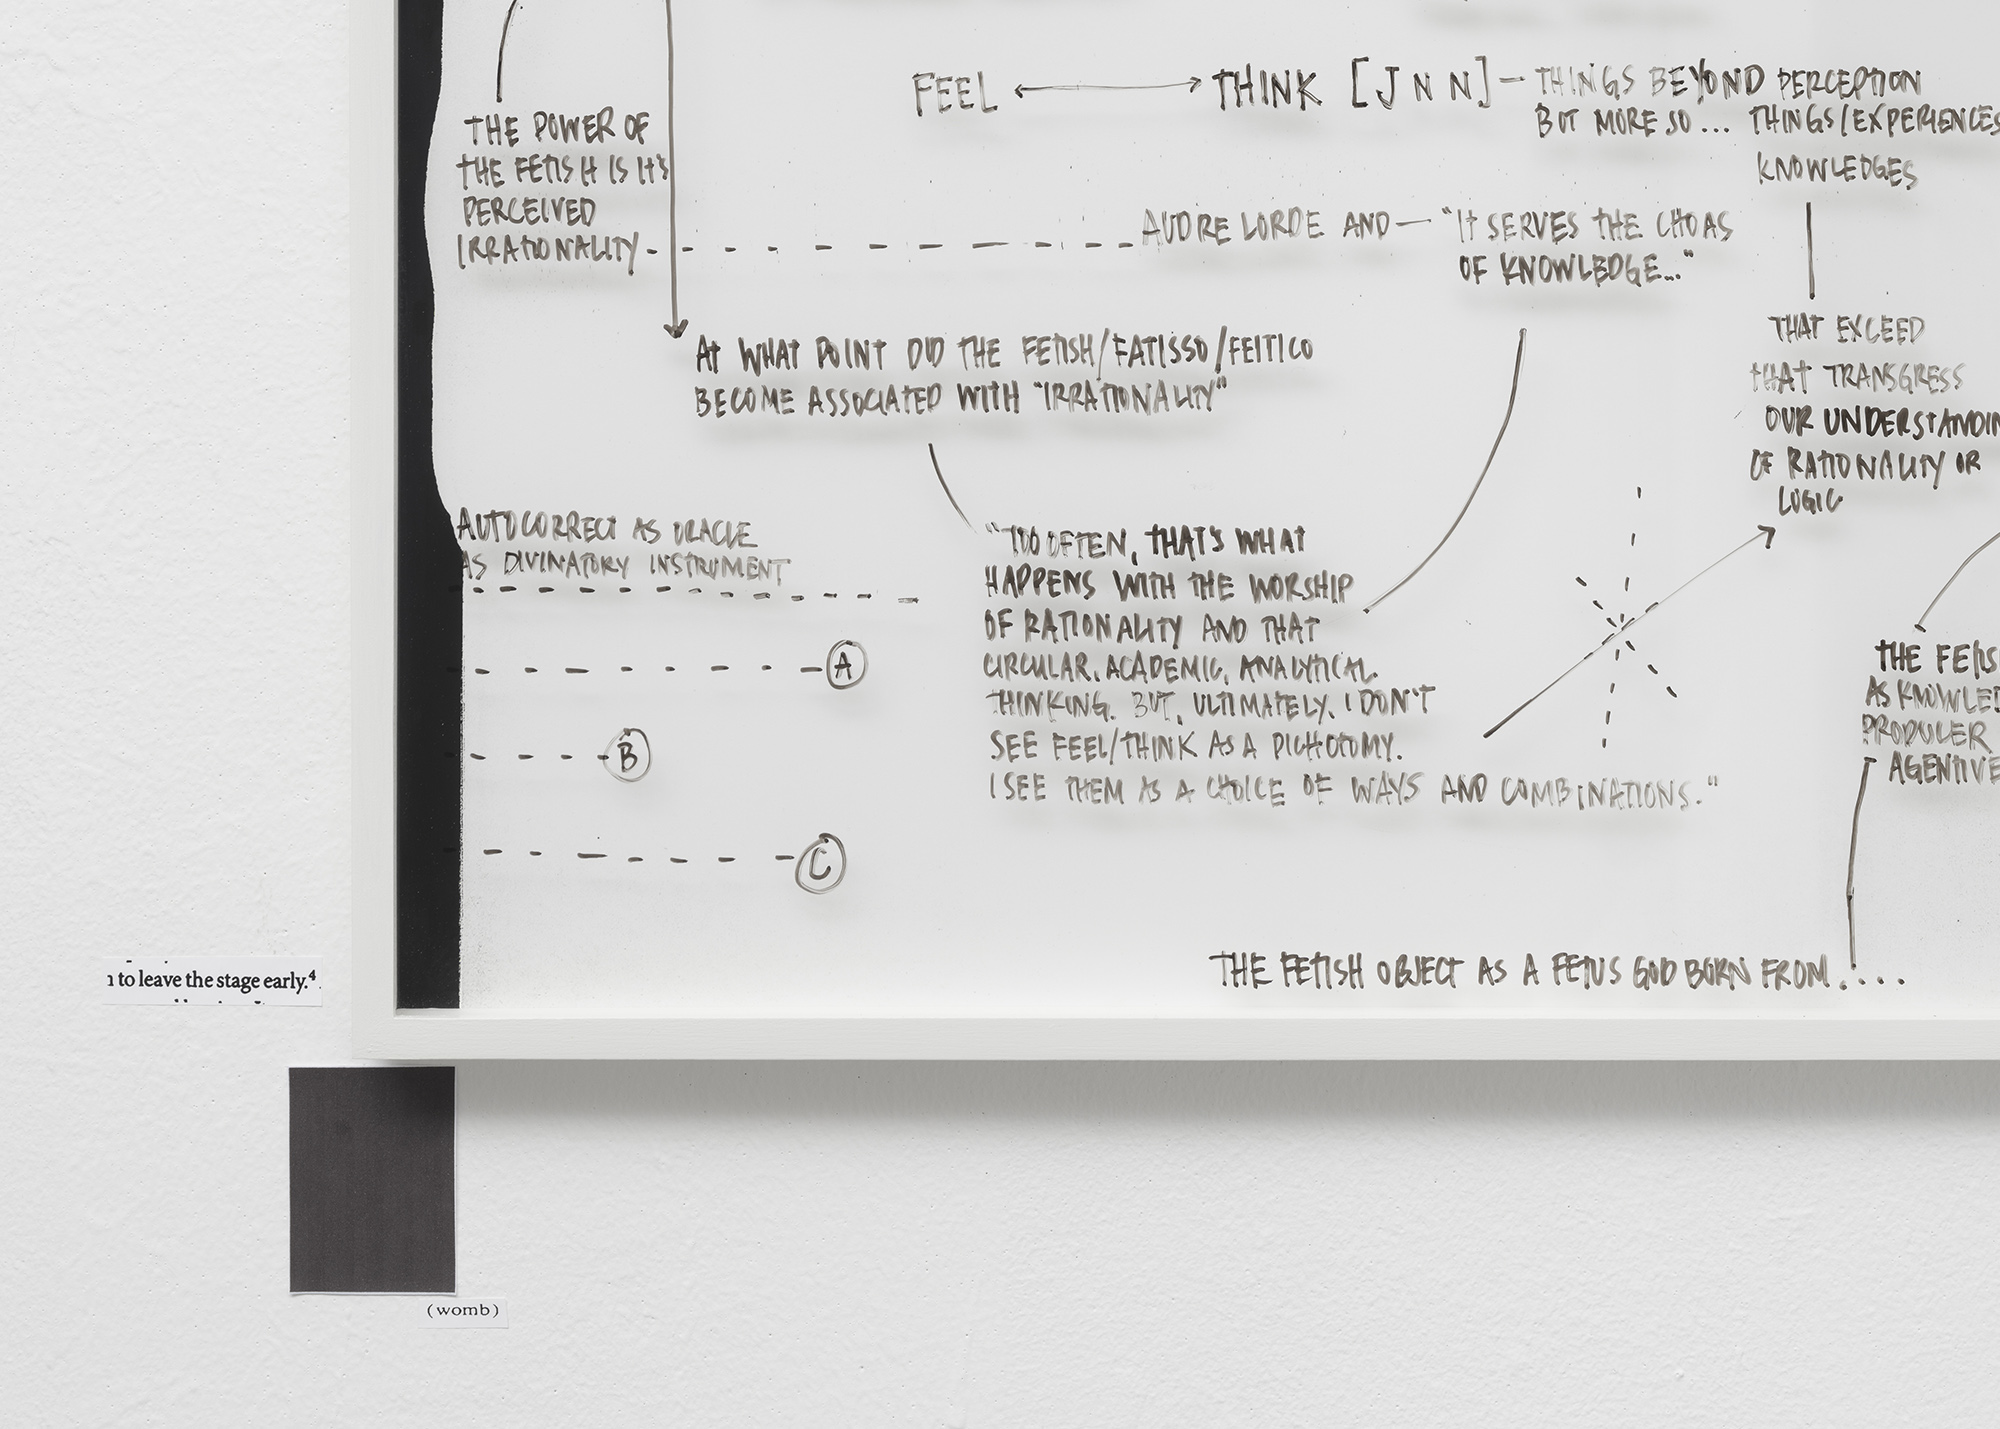 FEEL ↔ THINK [J N N] — THINGS BEYOND PERCEPTION
BUT MORE SO... THINGS/EXPERIENCES
KNOWLEDGES
THE POWER OF
THE FETISH IS IT'S
PERCEIVED
IRRATIONALITY
AUDRE LORDE AND — "IT SERVES THE CHOAS
OF KNOWLEDGE..."
THAT EXCEED
THAT TRANSGRESS
OUR UNDERSTANDIN
OF RATIONALITY OR
LOGIC
AT WHAT POINT DID THE FETISH/FATISSO/FEITICO
BECOME ASSOCIATED WITH "IRRATIONALITY"
AUTOCORRECT AS ORACLE
AS DIVINATORY INSTRUMENT
A
B
C
"TOO OFTEN, THAT'S WHAT
HAPPENS WITH THE WORSHIP
OF RATIONALITY AND THAT
CIRCULAR, ACADEMIC, ANALYTICAL
THINKING. BUT, ULTIMATELY, I DON'T
SEE FEEL/THINK AS A DICHOTOMY.
I SEE THEM AS A CHOICE OF WAYS AND COMBINATIONS."
THE FETIS
AS KNOWLED
PRODUCER
AGENTIVE
THE FETISH OBJECT AS A FETUS GOD BORN FROM.....
to leave the stage early.4
(womb)